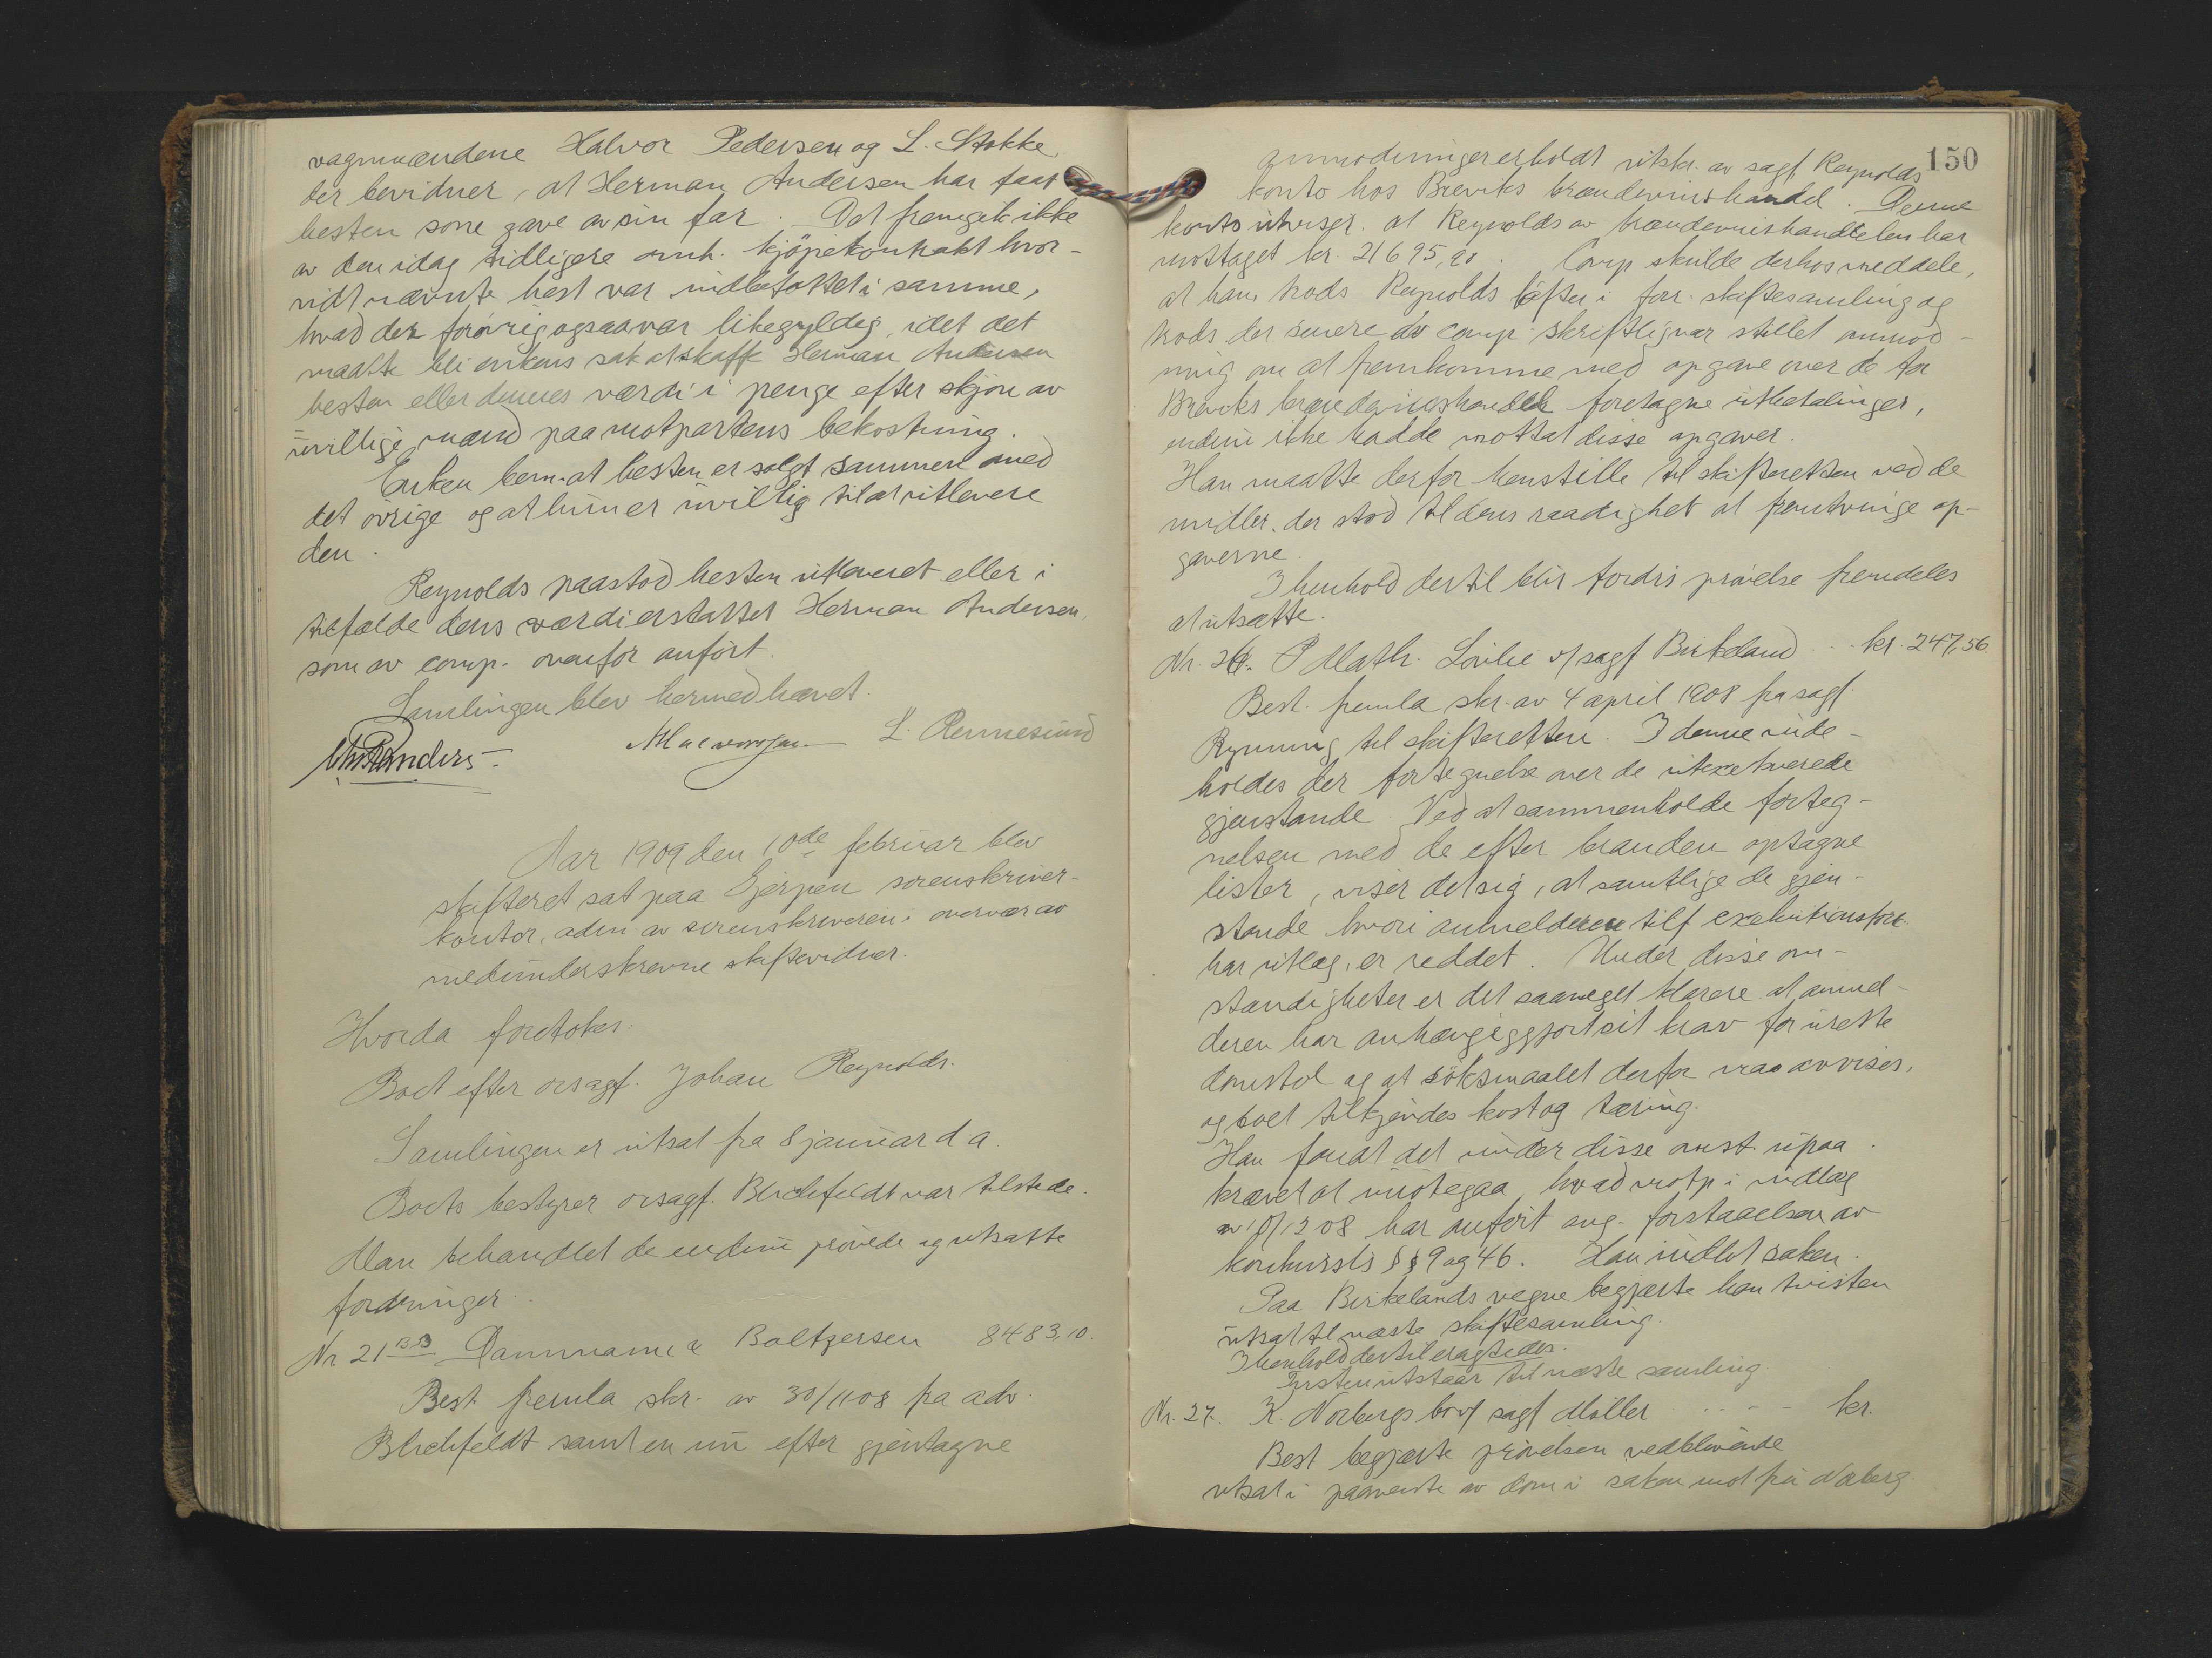 vagnmændene Halvor Pedersen og L. Stokke,
der bevidner, at Herman Andersen har faat
hesten som gave av sin far. Det fremgik ikke
av den idag tidligere omh. kjöpekontrakt hvor-
vidt nævnte hest var indbefattet i samme,
hvad der forövrig ogsaa var likegyldig, idet det
maatte bli enkens sak at skaffe Herman Andersen
hesten eller dennes værdi i penge efter skjön av
uvillige mænd paa motpartens bekostning.
Enken bem. at hesten er solgt sammen med
det övrige og at hun er uvillig til at utlevere
den.
Reynolds paastod hesten utleveret eller i
tilfælde dens værdi erstattet Herman Andersen,
som av comp. ovenfor anfört.
Samlingen blev hermed hævet.
L. Rennesund
Aar 1909 den 10de februar blev
skifteret sat paa Gjerpen sorenskriver-
kontor, adm. av sorenskriveren i overvær av
medunderskrevne skiftevidner.
Hvorda foretokes:
Boet efter orsagf. Johan Reynolds.
Samlingen er utsat fra 8 januar d a.
Boets bestyrer orsagf. Blichfeldt var tilstede.
Man behandlet de endnu prövede og utsatte
fordringer.
Nr 21 Dammann & Baltzersen 8483,10.
Best. fremla skr. av 30/11 08 fra adv.
Blichfeldt samt en nu efter gjentagne
150
anmodninger erholdt utskr. av sagf Reynolds
konto hos Breviks brændevinshandel. Denne
konto utviser, at Reynolds av brændevinshandelen har
mottaget kr. 21695,90. Comp skulde derhos meddele,
at han, trods Reynolds löfter i forr. skiftesamling og
trods der senere av comp. skriftlig var stillet anmod-
ning om at fremkomme med opgave over de for
Breviks brændevinshandel foretagne utbetalinger,
endnu ikke hadde mottat disse opgaver.
Han maatte derfor henstille til skifteretten ved de
midler, der stod til dens raadighet at fremtvinge op-
gaverne.
I henhold dertil blir fordr's prövelse fremdeles
at utsætte.
Nr. 26. P Math. Lövlie v/ sagf Birkeland ... kr. 247,56
Best. fremla skr. av 4 april 1908 fra sagf.
Rynning til skifteretten. I denne inde-
holdes der fortegnelse over de utexekverede
gjenstande. Ved at sammenholde forteg-
nelsen med de efter branden optagne
lister, viser det sig, at samtlige de gjen-
stande hvori anmelderen tilf exekutionsforr.
har utlæg, er reddet. Under disse om-
standigheter er det saameget klarere at anmel-
deren har anhængiggjort sit krav for urette
domstol og at söksmaalet derfor maa avvises,
og boet tilkjendes kost og tæring.
Han fandt det under disse omst. upaa-
krævet at imötegaa, hvad motp. i indlæg
av 10/12 08 har anfört ang. forstaaelsen av
konkursls §§ 9 og 46. Han indlot saken.
Paa Birkelands vegne begjærte han tvisten
utsat til næste skiftesamling.
I henhold dertil eragtedes:
Tvisten utstaar til næste samling.
Nr. 27. K. Norbergs bo v/ sagf Möller ---- kr.
Best begjærte prövelsen vedblivende
utsat i paavente av dom i saken mot fru Norberg.